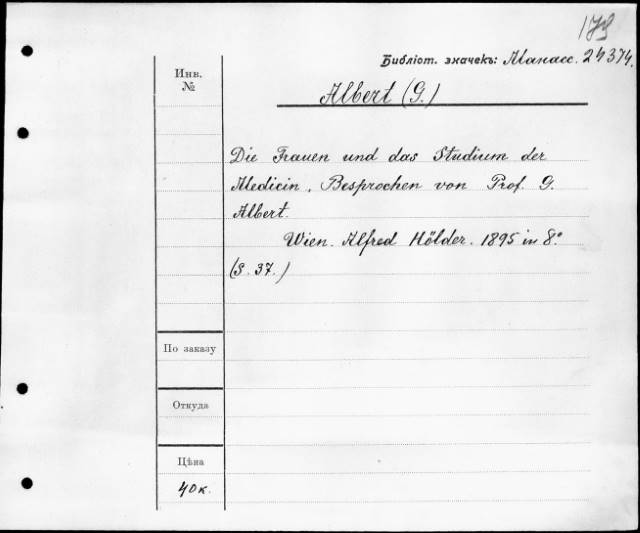 173
Библіот. значекъ: Манасс. 24374.
Инв.
№
Albert (G.)
Die Frauen und das Studium der
Medicin. Besprochen von Prof. G.
Albert.
Wien. Alfred Hölder. 1895 in 8°
(S. 37.)
По заказу
Откуда
Цѣна
40к.